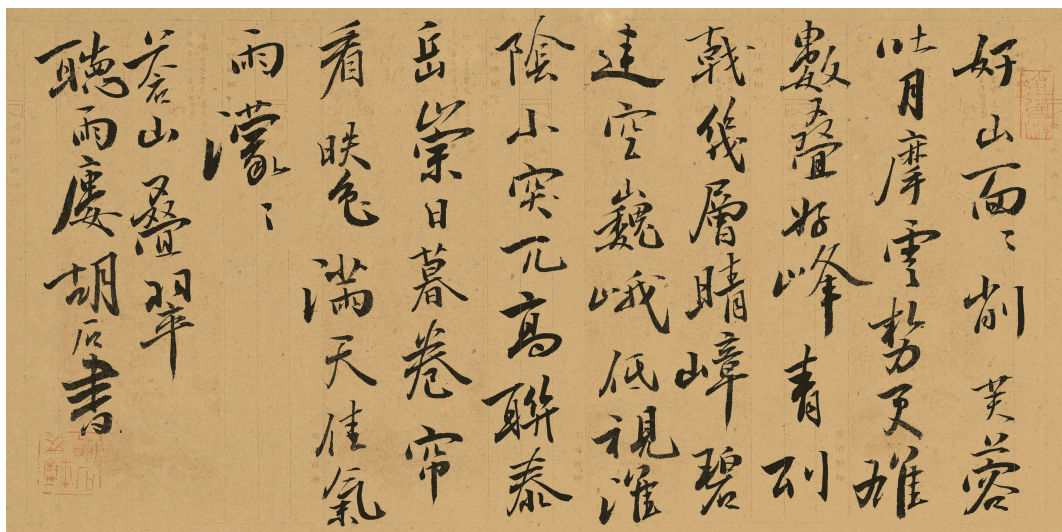 好山面〻削芙蓉
吐月摩雲勢更雄
數叠好峰青列
戟幾層晴嶂碧
連空巍峨低視淮
陰小突兀高聯泰
岳崇日暮卷帘
看色滿天佳氣
雨濛〻
蒼山叠翠
聽雨廔胡石書